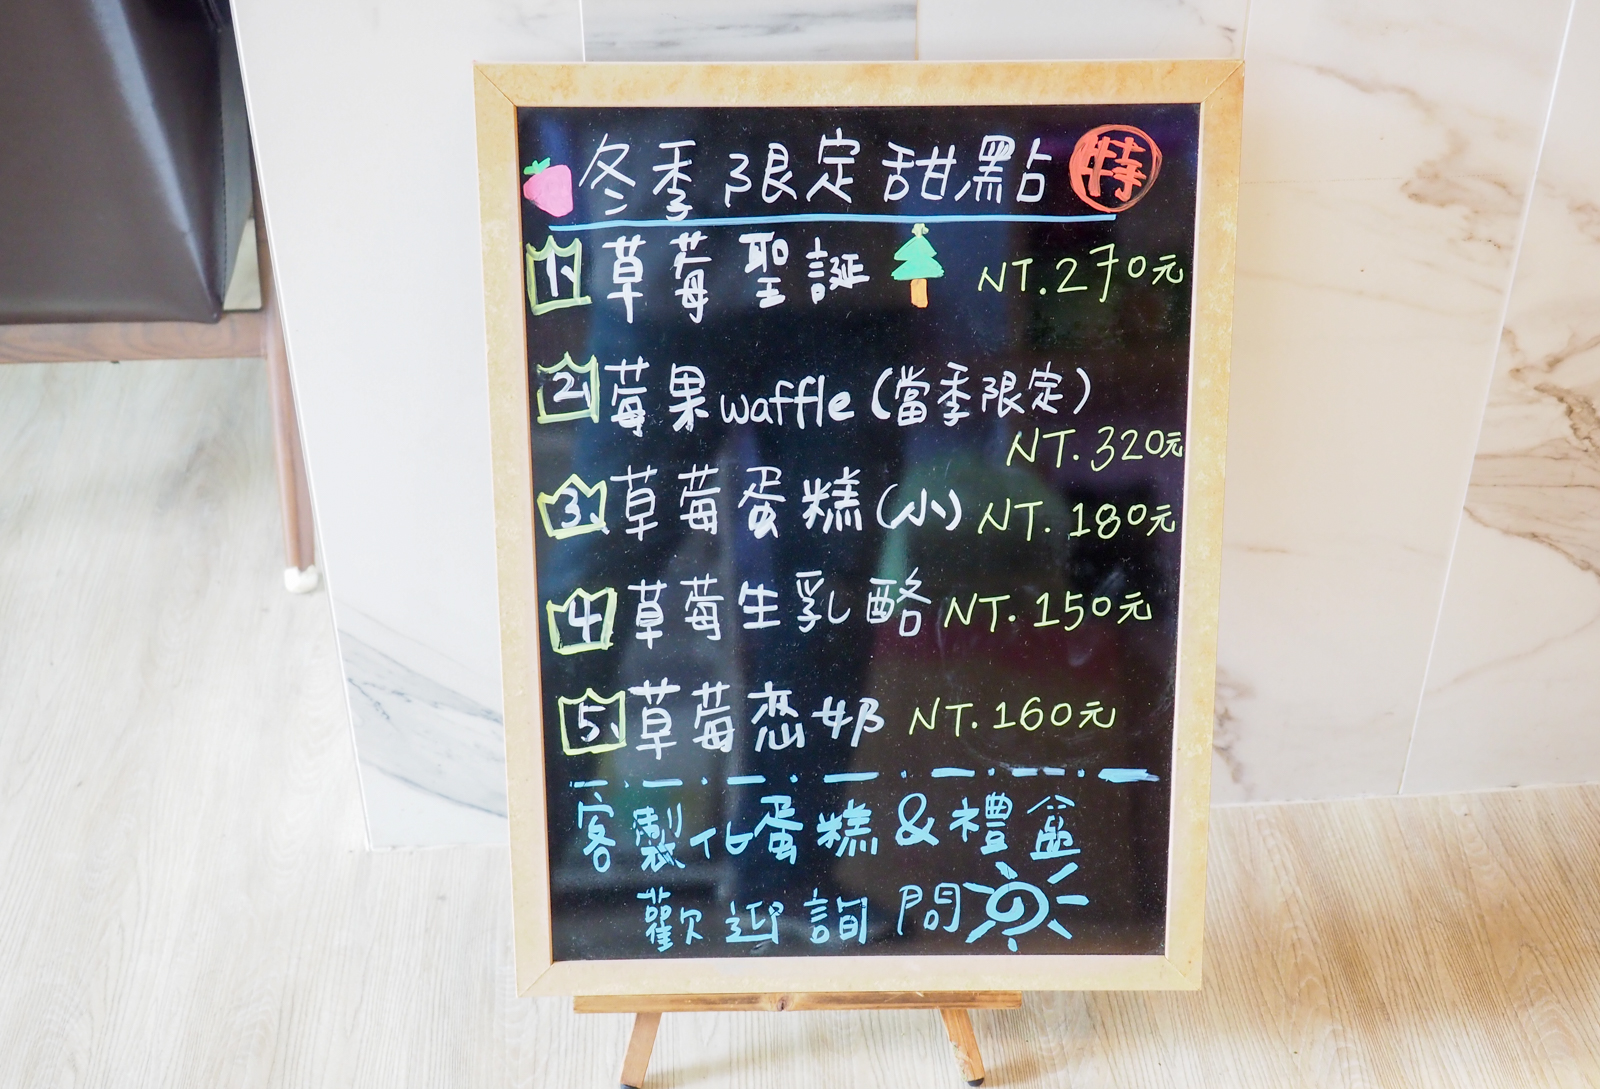 冬季限定甜點 特
1、草莓聖誕 NT.270元
2、莓果waffle(當季限定)
NT.320元
3、草莓蛋糕(小) NT.180元
4、草莓生乳酪 NT.150元
5、草莓恋奶 NT.160元
客製化蛋糕&禮盒
歡迎詢問